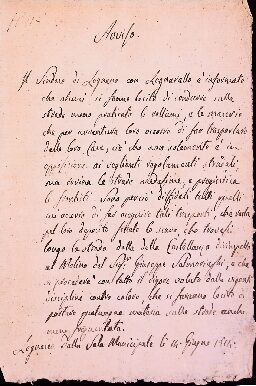 Avviso.
Il Sindaco di Legnaro con Legnarello è informato
che alcuni si fanno lecito di condurre sulle
strade meno praticate li rottami, e le macerie
che per avventura loro occorre di far trasportare
dalle loro case, ciò che non solamente è in
opposizione ai veglianti regolamenti stradali,
ma rovina le strade medesime, e pregiudica
li frontisti. Sono perciò diffidati tutti quelli
cui occorre di far eseguire tali trasporti, che resta
pel loro deposito fissato lo scavo, che trovasi
lungo la strada detta della Castellanza dirimpetto
al Molino del Sig. Giuseppe Salmoiraghi, e che
si procederà con tutto il rigore voluto dalle vigenti
discipline contro coloro, che si faranno lecito di
portare qualunque materia sulle strade anche
meno frequentate.
Legnano Dalla Sala Municipale li 14 Giugno